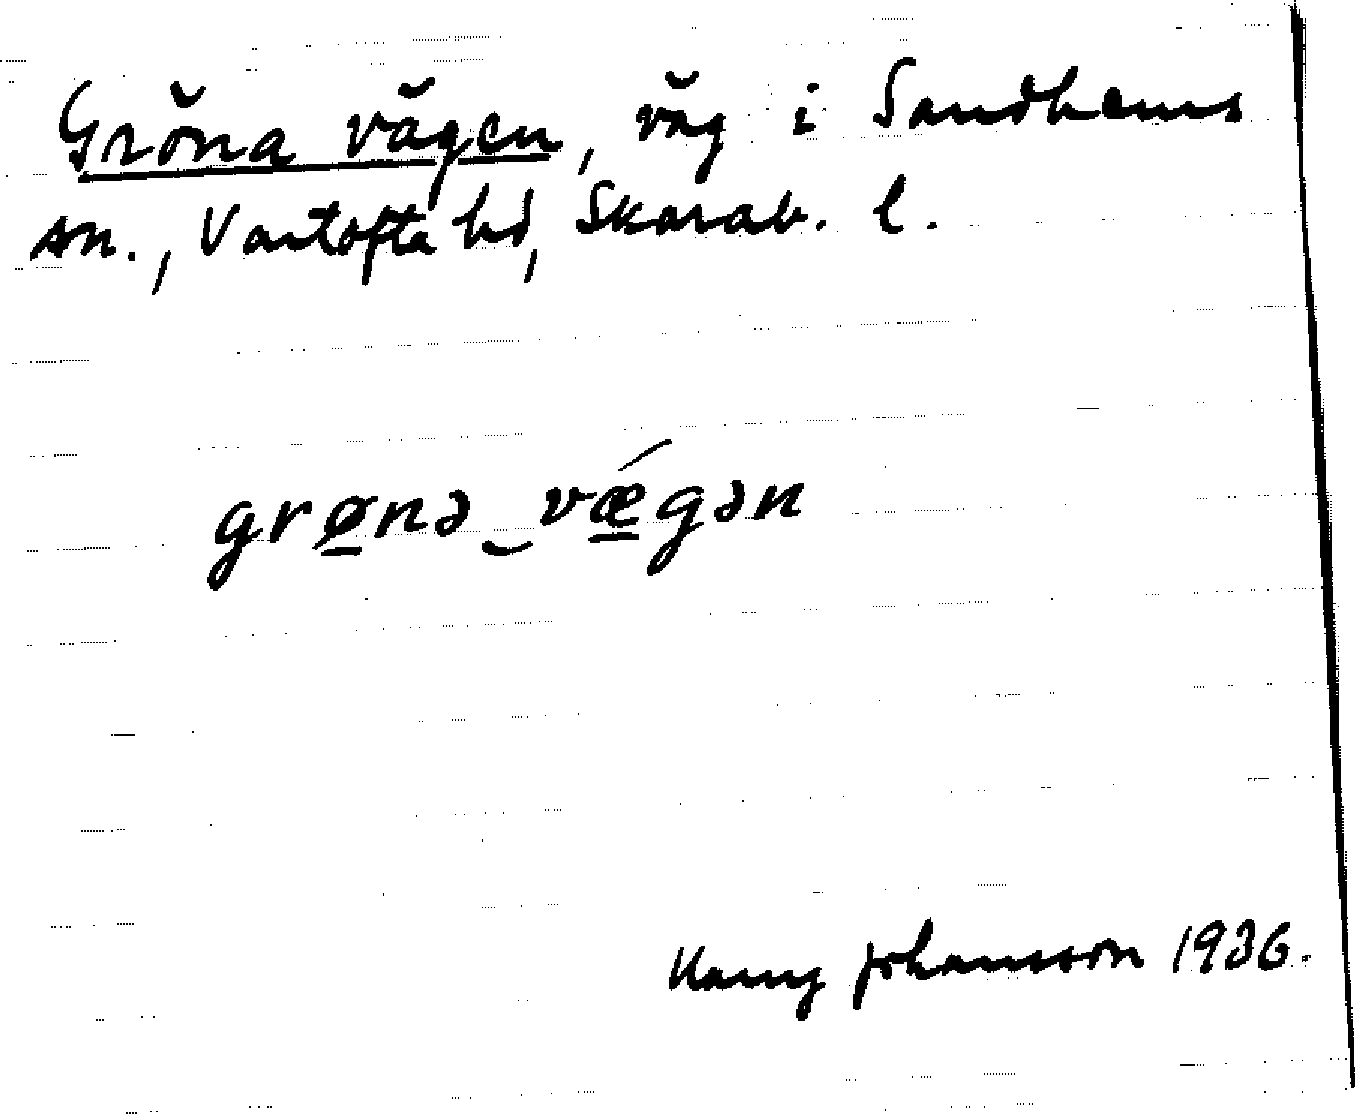 Gröna vägen, väg i Sandhems
sn., Vartofta hd, Skarab. l.
grø̲nə‿vǽ̲gən
Johansson 1936.